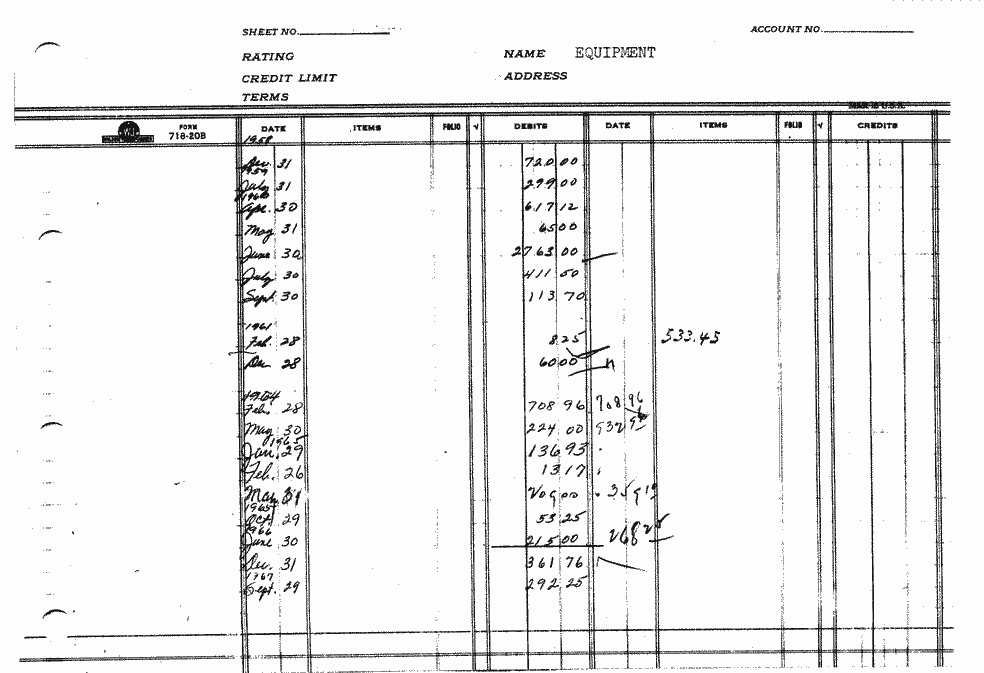 SHEET NO. ACCOUNT NO.
RATING NAME EQUIPMENT
CREDIT LIMIT ADDRESS
TERMS
MADE IN U.S.A.
FORM 718-20B DATE ITEMS FOLIO √ DEBITS DATE ITEMS FOLIO √ CREDITS
1958
Dec. 31 720 00
1959
July 31 299 00
1960
Apr. 30 617 12
May 31 65 00
June 30 2763 00
July 30 411 50
Sept. 30 113 70
1961
Feb. 28 8 25 533.45
Dec. 28 60 00
1964
Feb. 28 708 96 708 96
May 30 224 00 932 96
1965
Jan. 29 136 93
Feb. 26 13 17
Mar. 31 209 00 359 10
1965
Oct. 29 53 25
1966
June 30 215 00 268 25
Dec. 31 361 76
1967
Sept. 29 292 25